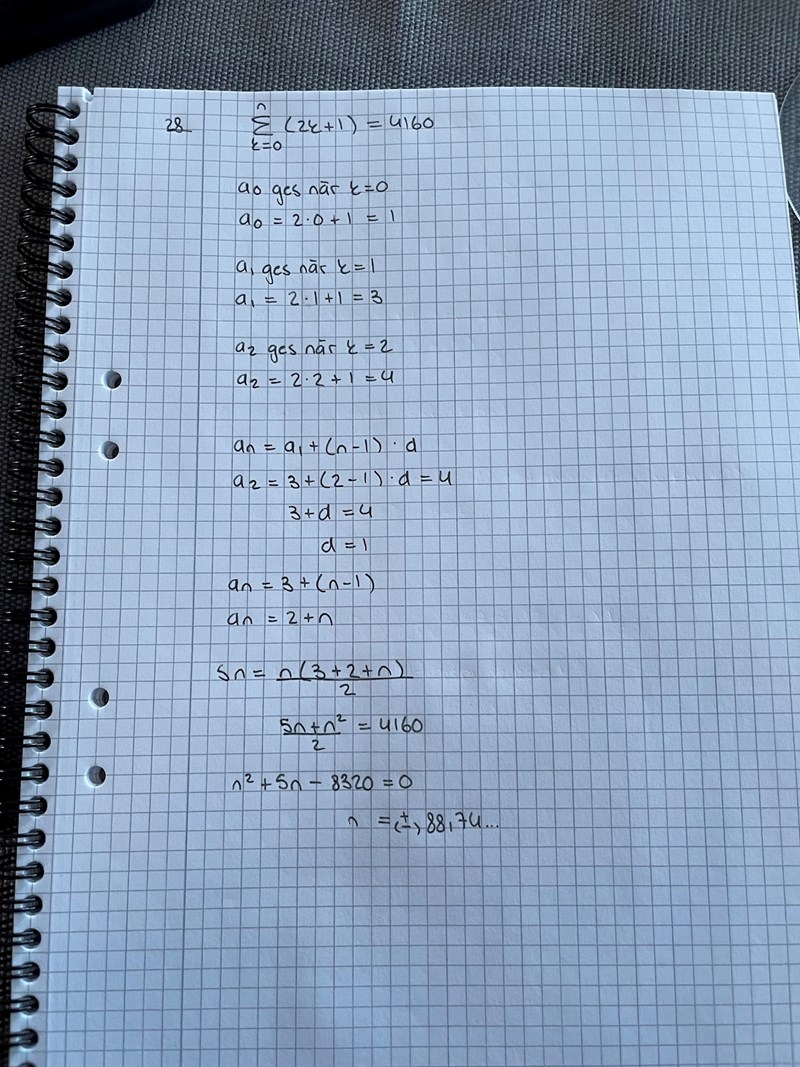 28 n
Σ (2k+1) = 4160
k=0
a₀ ges när k=0
a₀ = 2·0+1 = 1
a₁ ges när k=1
a₁ = 2·1+1 = 3
a₂ ges när k=2
a₂ = 2·2+1 = 4
aₙ = a₁+(n-1)·d
a₂ = 3+(2-1)·d = 4
3+d = 4
d = 1
aₙ = 3+(n-1)
aₙ = 2+n
Sn = n(3+2+n)
2
5n+n² = 4160
2
n²+5n-8320=0
n = (±) 88,74...